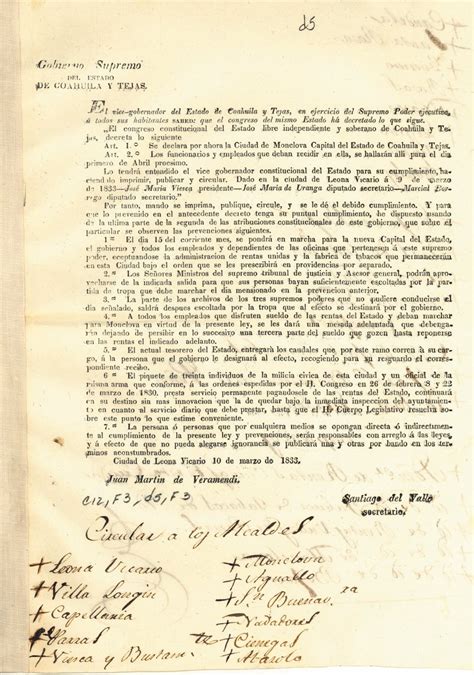 d5
Gobierno Supremo
DEL ESTADO
DE COAHUILA Y TEJAS.
El vice-gobernador del Estado de Coahuila y Tejas, en ejercicio del Supremo Poder ejecutivo,
á todos sus habitantes SABED: que el congreso del mismo Estado há decretado lo que sigue.
„El congreso constitucional del Estado libre independiente y soberano de Coahuila y Te-
jas, decreta lo siguiente
Art. 1.º Se declara por ahora la Ciudad de Monclova Capital del Estado de Coahuila y Tejas.
Art. 2.º Los funcionarios y empleados que deban recidir en ella, se hallarán allí para el dia
primero de Abril procsimo.
Lo tendrá entendido el vice gobernador constitucional del Estado para su cumplimiento, ha-
ciendolo imprimir, publicar y circular. Dado en la ciudad de Leona Vicario á 9 de marzo
de 1833—José Maria Viesca presidente—José Maria de Uranga diputado secretario—Marcial Bor-
rego diputado secretario."
Por tanto, mando se imprima, publique, circule, y se le dé el debido cumplimiento. Y para
que lo prevenido en el antecedente decreto tenga su puntual cumplimiento, he dispuesto usando
de la ultima parte de la segunda de las atribuciones constitucionales de este gobierno, que sobre el
particular se observen las prevenciones siguientes.
1.ª El dia 15 del corriente mes, se pondrá en marcha para la nueva Capital del Estado,
el gobierno y todos los empleados y dependientes de las oficinas pertenecientes á el supremo
poder, eceptuandose la administracion de rentas unidas y la fabrica de tabacos que permanecerán
en esta Ciudad bajo el orden que se les prescribirá en providencias por separado.
2.ª Los Señores Ministros del supremo tribunal de justicia y Asesor general, podrán apro-
vecharse de la indicada salida para que sus personas bayan suficientemente escoltadas por la par-
tida de tropa que debe marchar el dia mensionado en la prevencion anterior.
3.ª La parte de los archivos de los tres supremos poderes que no quieren conducirse el
dia señalado, saldrá despues escoltada por la tropa que al efecto se destinará por el gobierno.
4.ª A todos los empleados que disfruten sueldo de las rentas del Estado y deban marchar
para Monclova en virtud de la presente ley, se les dará una mesada adelantada que devenga-
rán dejando de percibir en lo succesivo una tercera parte del sueldo que gozen hasta reponerse
en las rentas el indicado adelanto.
5.ª El actual tesorero del Estado, entregará los caudales que, por este ramo corren á su car-
go, á la persona que el gobierno le designará al efecto, recogiendo para su resguardo el corres-
pondiente recibo.
6.ª El piquete de treinta individuos de la milicia civica de esta ciudad y un oficial de la
misma arma que conforme, á las ordenes espedidas por el H. Congreso en 26 de febrero y 22
de marzo de 1830, presta servicio permanente pagandosele de las rentas del Estado, continuará
en su destino sin mas innovacion que la de quedar bajo la inmediata inspeccion del ayuntamien-
to en cuanto al servicio diario que debe prestar, hasta que el H. Cuerpo Legislativo resuelva so-
bre este punto lo que estime conveniente.
7.ª La persona ó personas que por cualquiera medios se opongan directa ó indirectamente
al cumplimiento de la presente ley y prevenciones, serán responsables con arreglo á las leyes,
y á efecto de que no pueda alegarse ignorancia se publicará una y otras por bando en los ter-
minos acostumbrados.
Ciudad de Leona Vicario 10 de marzo de 1833.
Juan Martin de Veramendi.
C12, F3, d5, F3
Santiago del Valle
secretario.
Circular a los Alcaldes
+ Leona Vicario
+ Villa Longin
+ Capellania
+ Parras
+ Viesca y Bustam.te
+ Monclova
+ Aguallo
+ Sn Buenav.ra
+ Nadadores
+ Cienegas
+ Abasolo